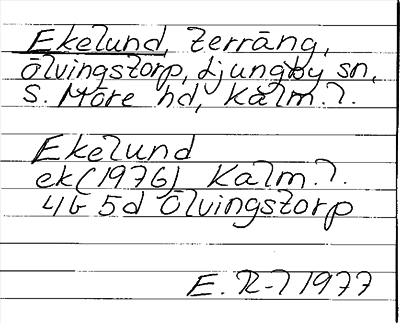 Ekelund, Terräng,
Ölvingstorp, Ljungby sn,
S. Möre hd, Kalm. l.
Ekelund
ek (1976) Kalm. l.
4G 5d Ölvingstorp
E. R-l 1977